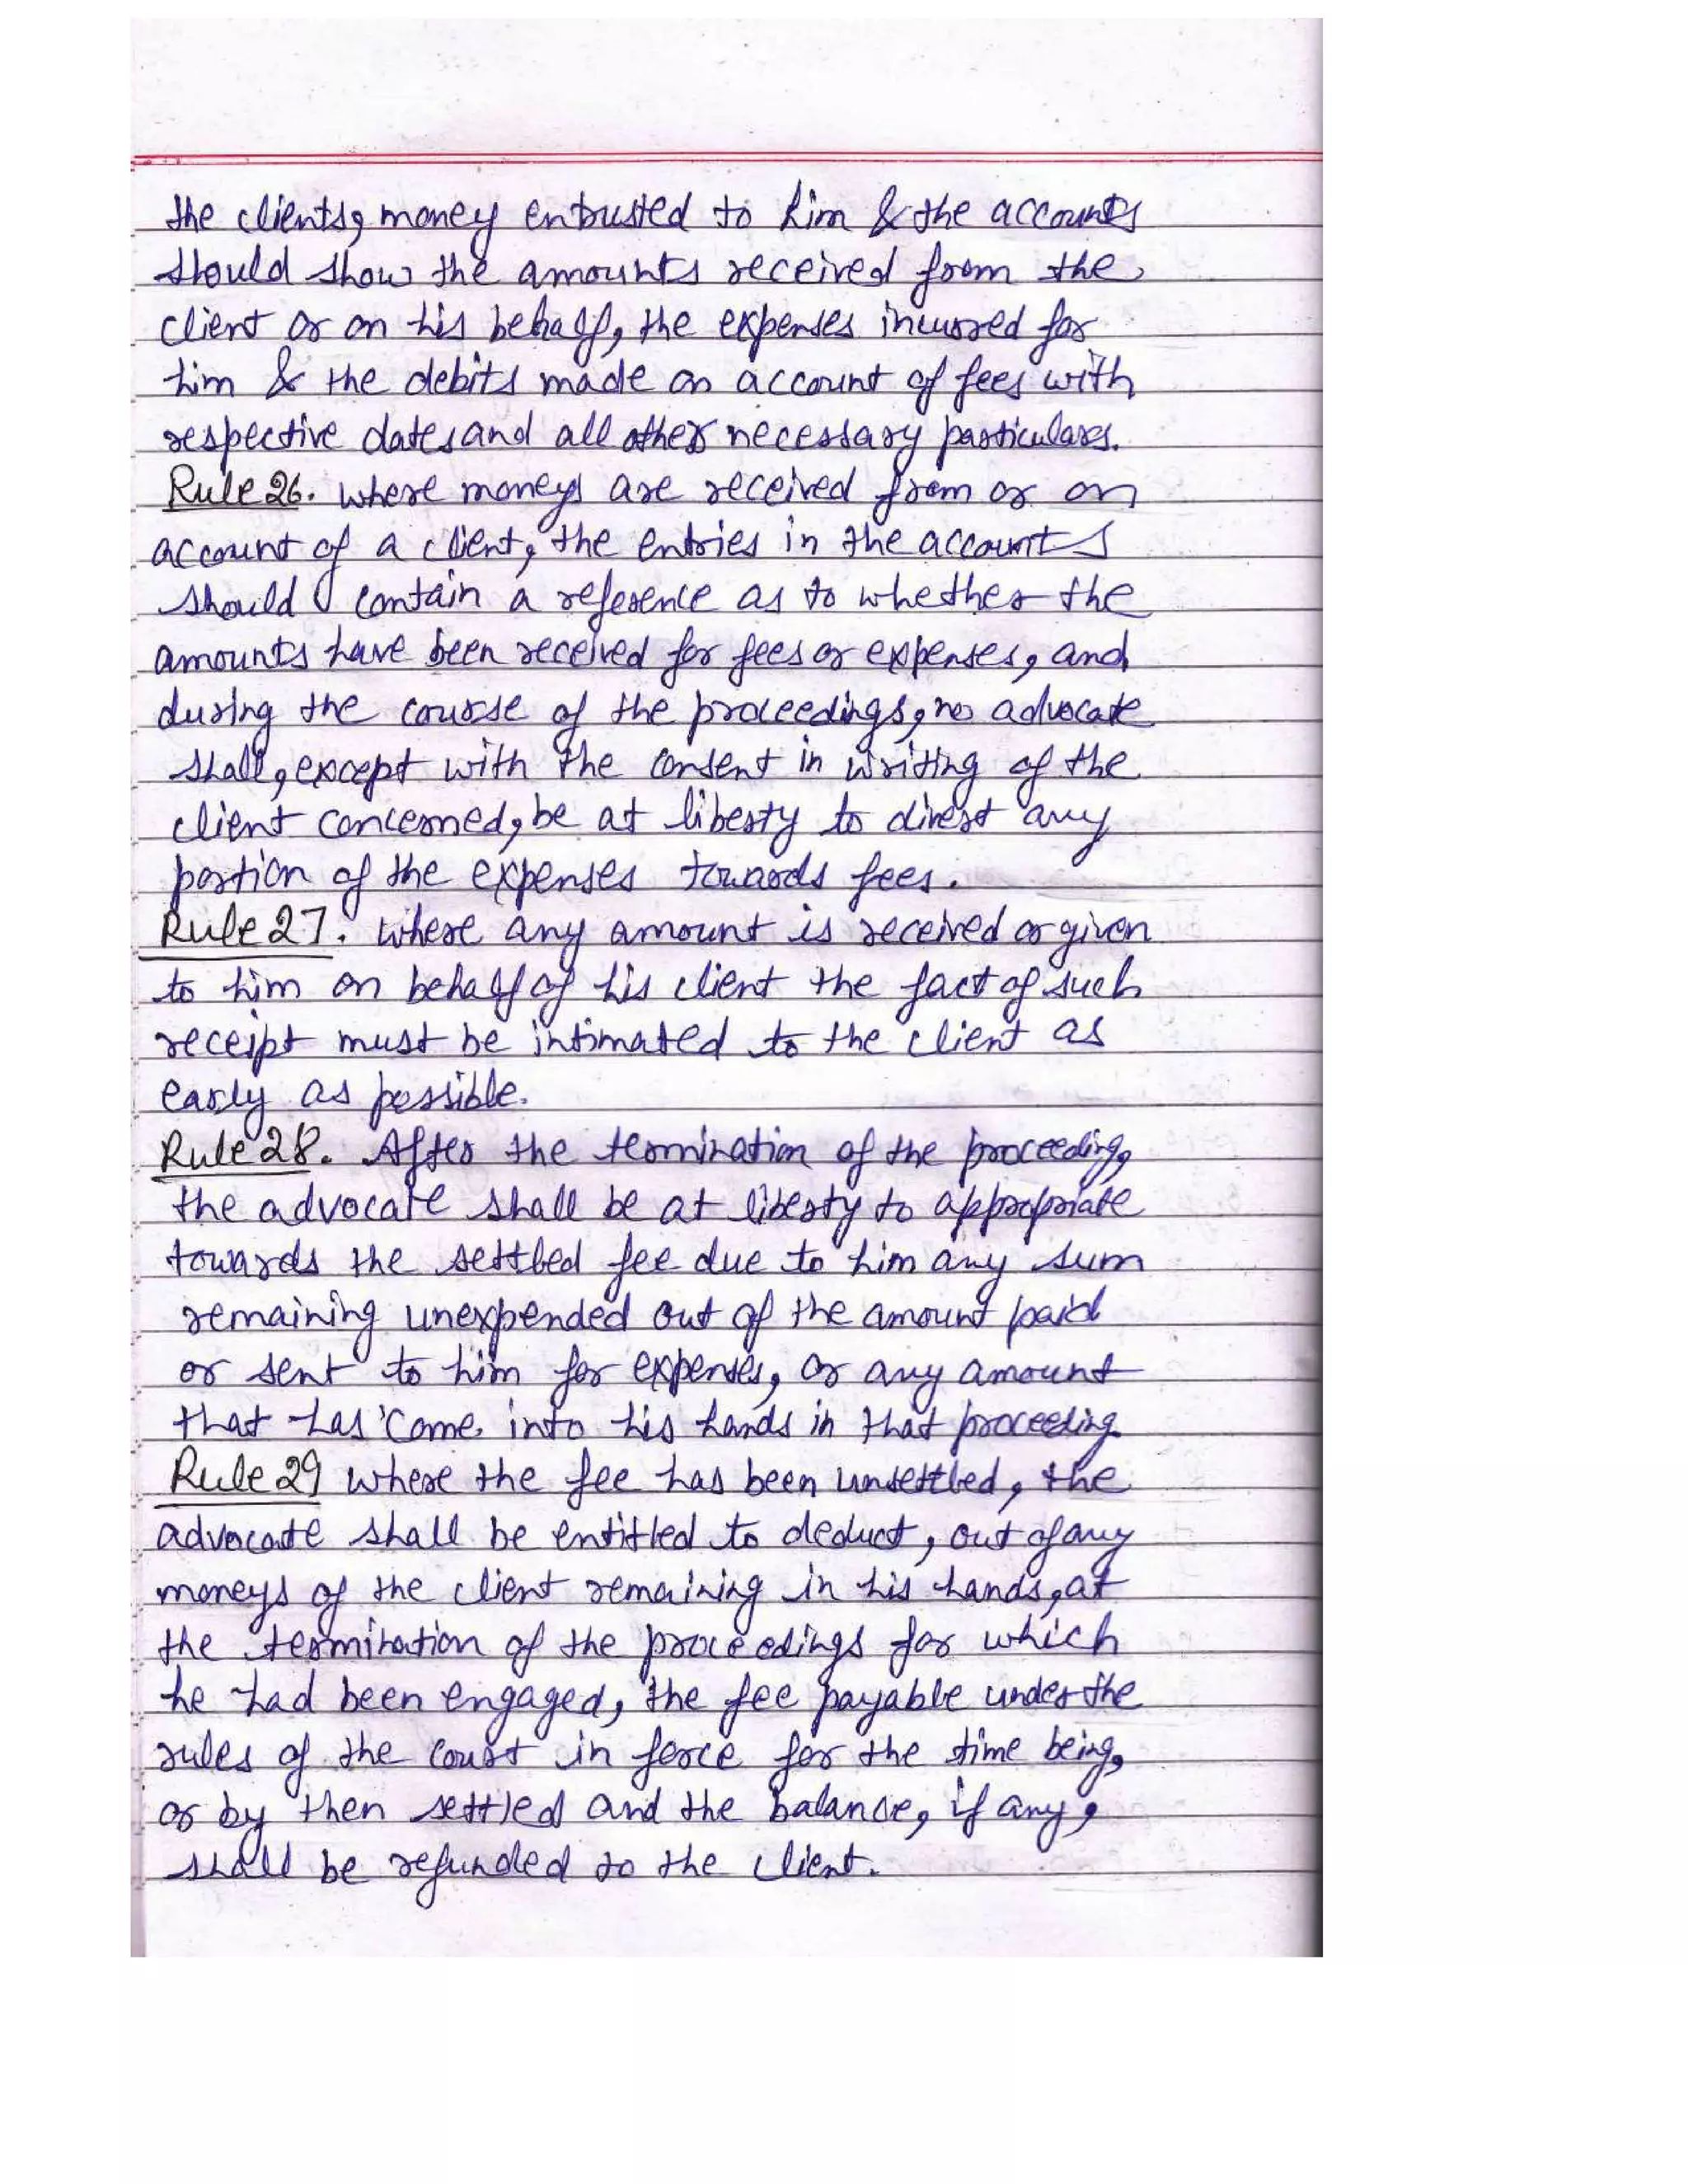 the clients, money entrusted to him & the accounts
should show the amounts received from the
client or on his behalf, the expenses incurred for
him & the debits made on account of fees with
respective dates and all other necessary particulars.
Rule 26. where moneys are received from or on
account of a client, the entries in the accounts
should contain a reference as to whether the
amounts have been received for fees or expenses, and
during the course of the proceedings, no advocate
shall, except with the consent in writing of the
client concerned, be at liberty to divest any
portion of the expenses towards fees.
Rule 27. where any amount is received or given
to him on behalf of his client the fact of such
receipt must be intimated to the client as
early as possible.
Rule 28. After the termination of the proceeding,
the advocate shall be at liberty to appropriate
towards the settled fee due to him any sum
remaining unexpended out of the amount paid
or sent to him for expenses, or any amount
that has come into his hands in that proceeding.
Rule 29 where the fee has been unsettled, the
advocate shall be entitled to deduct, out of any
moneys of the client remaining in his hands, at
the termination of the proceedings for which
he had been engaged, the fee payable under the
rules of the court in force for the time being,
or by then settled and the balance, if any,
shall be refunded to the client.